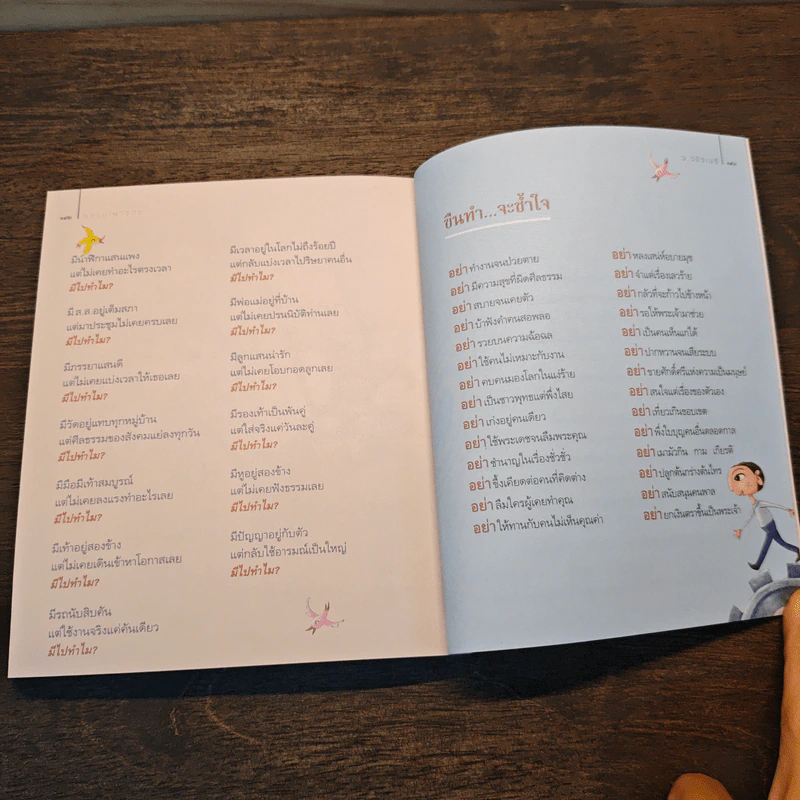 มีนาฬิกาแสนแพง
แต่ไม่เคยทำอะไรตรงเวลา
มีไปทำไม?
มี ส.ส.อยู่เต็มสภา
แต่มาประชุมไม่เคยครบเลย
มีไปทำไม?
มีภรรยาแสนดี
แต่ไม่เคยแบ่งเวลาให้เธอเลย
มีไปทำไม?
มีวัดอยู่แทบทุกหมู่บ้าน
แต่ศีลธรรมของสังคมแย่ลงทุกวัน
มีไปทำไม?
มีมือมีเท้าสมบูรณ์
แต่ไม่เคยลงแรงทำอะไรเลย
มีไปทำไม?
มีเท้าอยู่สองข้าง
แต่ไม่เคยเดินเข้าหาโอกาสเลย
มีไปทำไม?
มีรถนับสิบคัน
แต่ใช้งานจริงแค่คันเดียว
มีไปทำไม?
มีเวลาอยู่ในโลกไม่ถึงร้อยปี
แต่กลับแบ่งเวลาไปริษยาคนอื่น
มีไปทำไม?
มีพ่อแม่อยู่ที่บ้าน
แต่ไม่เคยปรนนิบัติท่านเลย
มีไปทำไม?
มีลูกแสนน่ารัก
แต่ไม่เคยโอบกอดลูกเลย
มีไปทำไม?
มีรองเท้าเป็นพันคู่
แต่ใส่จริงแค่วันละคู่
มีไปทำไม?
มีหูอยู่สองข้าง
แต่ไม่เคยฟังธรรมเลย
มีไปทำไม?
มีปัญญาอยู่กับตัว
แต่กลับใช้อารมณ์เป็นใหญ่
มีไปทำไม?
ว. วชิรเมธี
ขืนทำ...จะช้ำใจ
อย่า ทำงานจนป่วยตาย
อย่า มีความสุขที่มีดศีลธรรม
อย่า สบายจนเคยตัว
อย่า บ้าฟังคำคนสอพลอ
อย่า รวยบนความฉ้อฉล
อย่า ใช้คนไม่เหมาะกับงาน
อย่า คบคนมองโลกในแง่ร้าย
อย่า เป็นชาวพุทธแต่พึ่งไสย
อย่า เก่งอยู่คนเดียว
อย่า ใช้พระเดชจนลืมพระคุณ
อย่า ชำนาญในเรื่องชั่วชั่ว
อย่า ขึ้งเคียดต่อคนที่คิดต่าง
อย่า ลืมใครผู้เคยทำคุณ
อย่า ให้ทานกับคนไม่เห็นคุณค่า
อย่า หลงเสน่ห์อบายมุข
อย่า จำแต่เรื่องเลวร้าย
อย่า กลัวที่จะก้าวไปข้างหน้า
อย่า รอให้พระเจ้ามาช่วย
อย่า เป็นคนเห็นแก่ได้
อย่า ปากหวานจนเสียระบบ
อย่า ขายศักดิ์ศรีแห่งความเป็นมนุษย์
อย่า สนใจแต่เรื่องของตัวเอง
อย่า เที่ยวเกินขอบเขต
อย่า พึ่งใบบุญคนอื่นตลอดกาล
อย่า เมามัวกิน กาม เกียรติ
อย่า ปลูกต้นกร่างต้นไทร
อย่า สนับสนุนคนพาล
อย่า ยกเงินตราขึ้นเป็นพระเจ้า